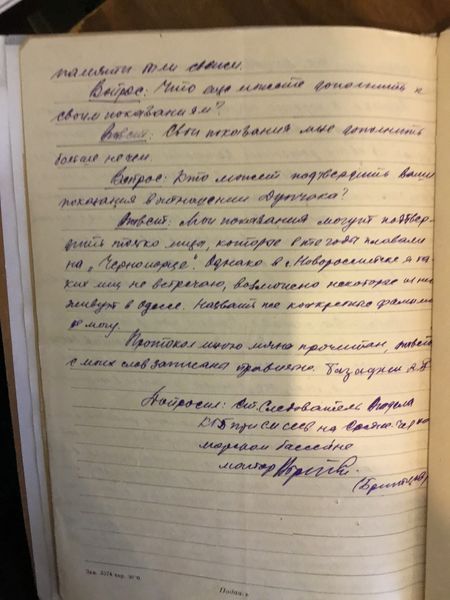 памяти или связи.
Вопрос: Что еще можете дополнить к
своим показаниям?
Ответ: Свои показания мне дополнить
больше нечем.
Вопрос: Кто может подтвердить Ваши
показания в отношении
Ответ: Мои показания могут подтвер-
дить только лица, которые в те годы плавали
на „Черноморце". Однако в г. Новороссийске я та-
ких лиц не встречаю, возможно некоторые из них
живут в Одессе. Назвать же конкретные фамилии
не могу.
Протокол мною лично прочитан, ответы
с моих слов записаны правильно.
Допросил: Ст. Следователь Отдела
КГБ при СМ СССР на
морском бассейне
майор
Зак. 5574 вар.
Подпись